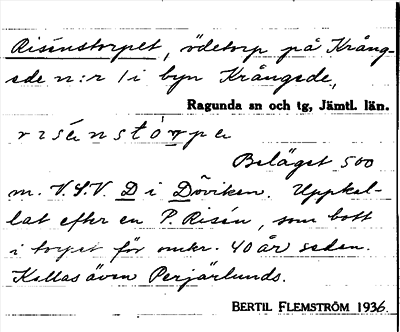 Risénstorpet, ödetorp på Krång-
ede n:r 1 i byn Krångede,
Ragunda sn och tg, Jämtl. län.
risénstórpe
Beläget 500
m. V.S.V. D i Döviken. Uppkal-
lat efter en P. Risén, som bott
i torpet för omkr. 40 år sedan.
Kallas även Perjärlunds.
BERTIL FLEMSTRÖM 1936.